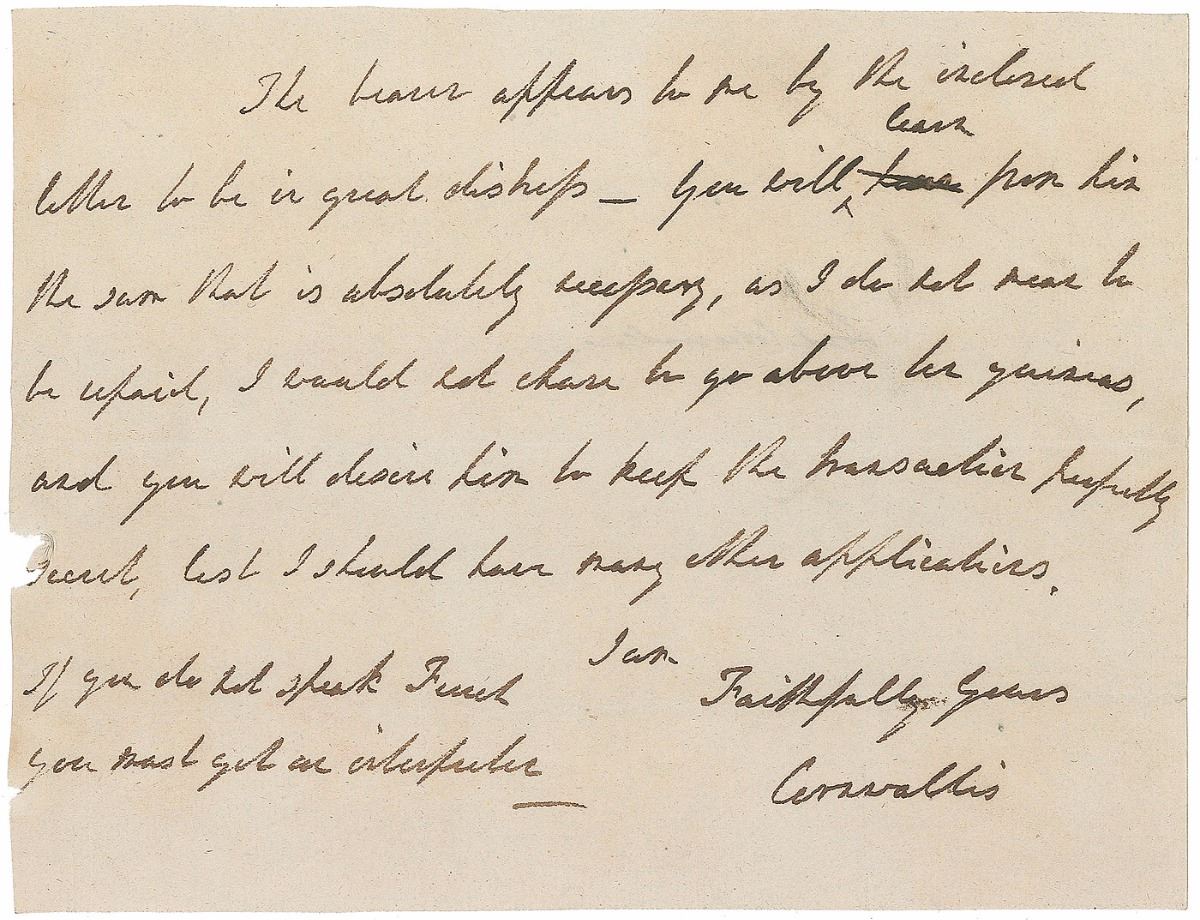 The bearer appears to me by the inclosed
learn
letter to be in great distress — You will from him
the sum that is absolutely necessary, as I do not mean to
be repaid, I would not chuse to go above ten guineas,
and you will desire him to keep the transaction perfectly
secret, lest I should have many other applications.
I am
If you do not speak French
Faithfully Yours
you must get an interpreter
Cornwallis